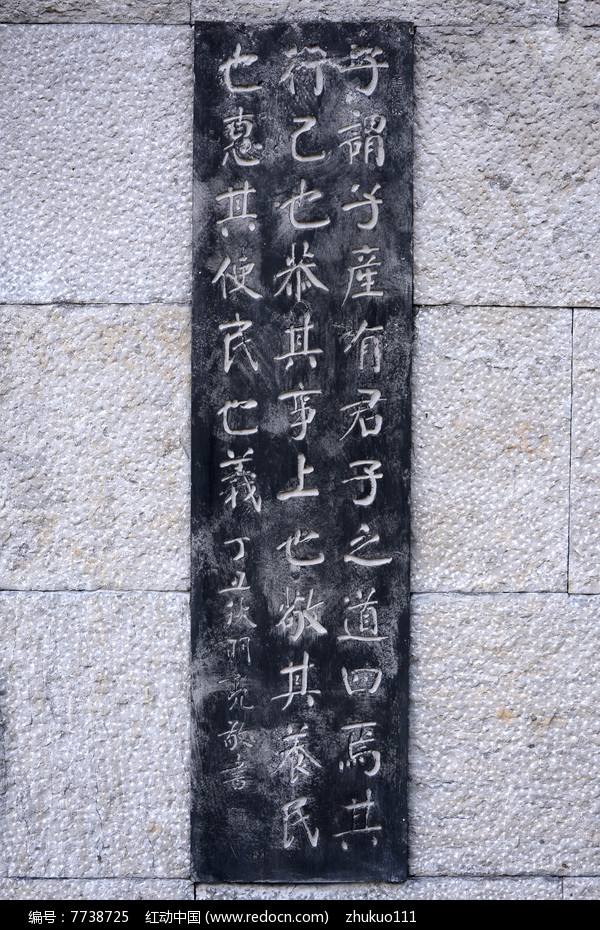 子謂子產有君子之道四焉其
行己也恭其事上也敬其養民
也惠其使民也義
丁丑秋羽亮敬書
编号：7738725 红动中国 (www.redocn.com) zhukuo111